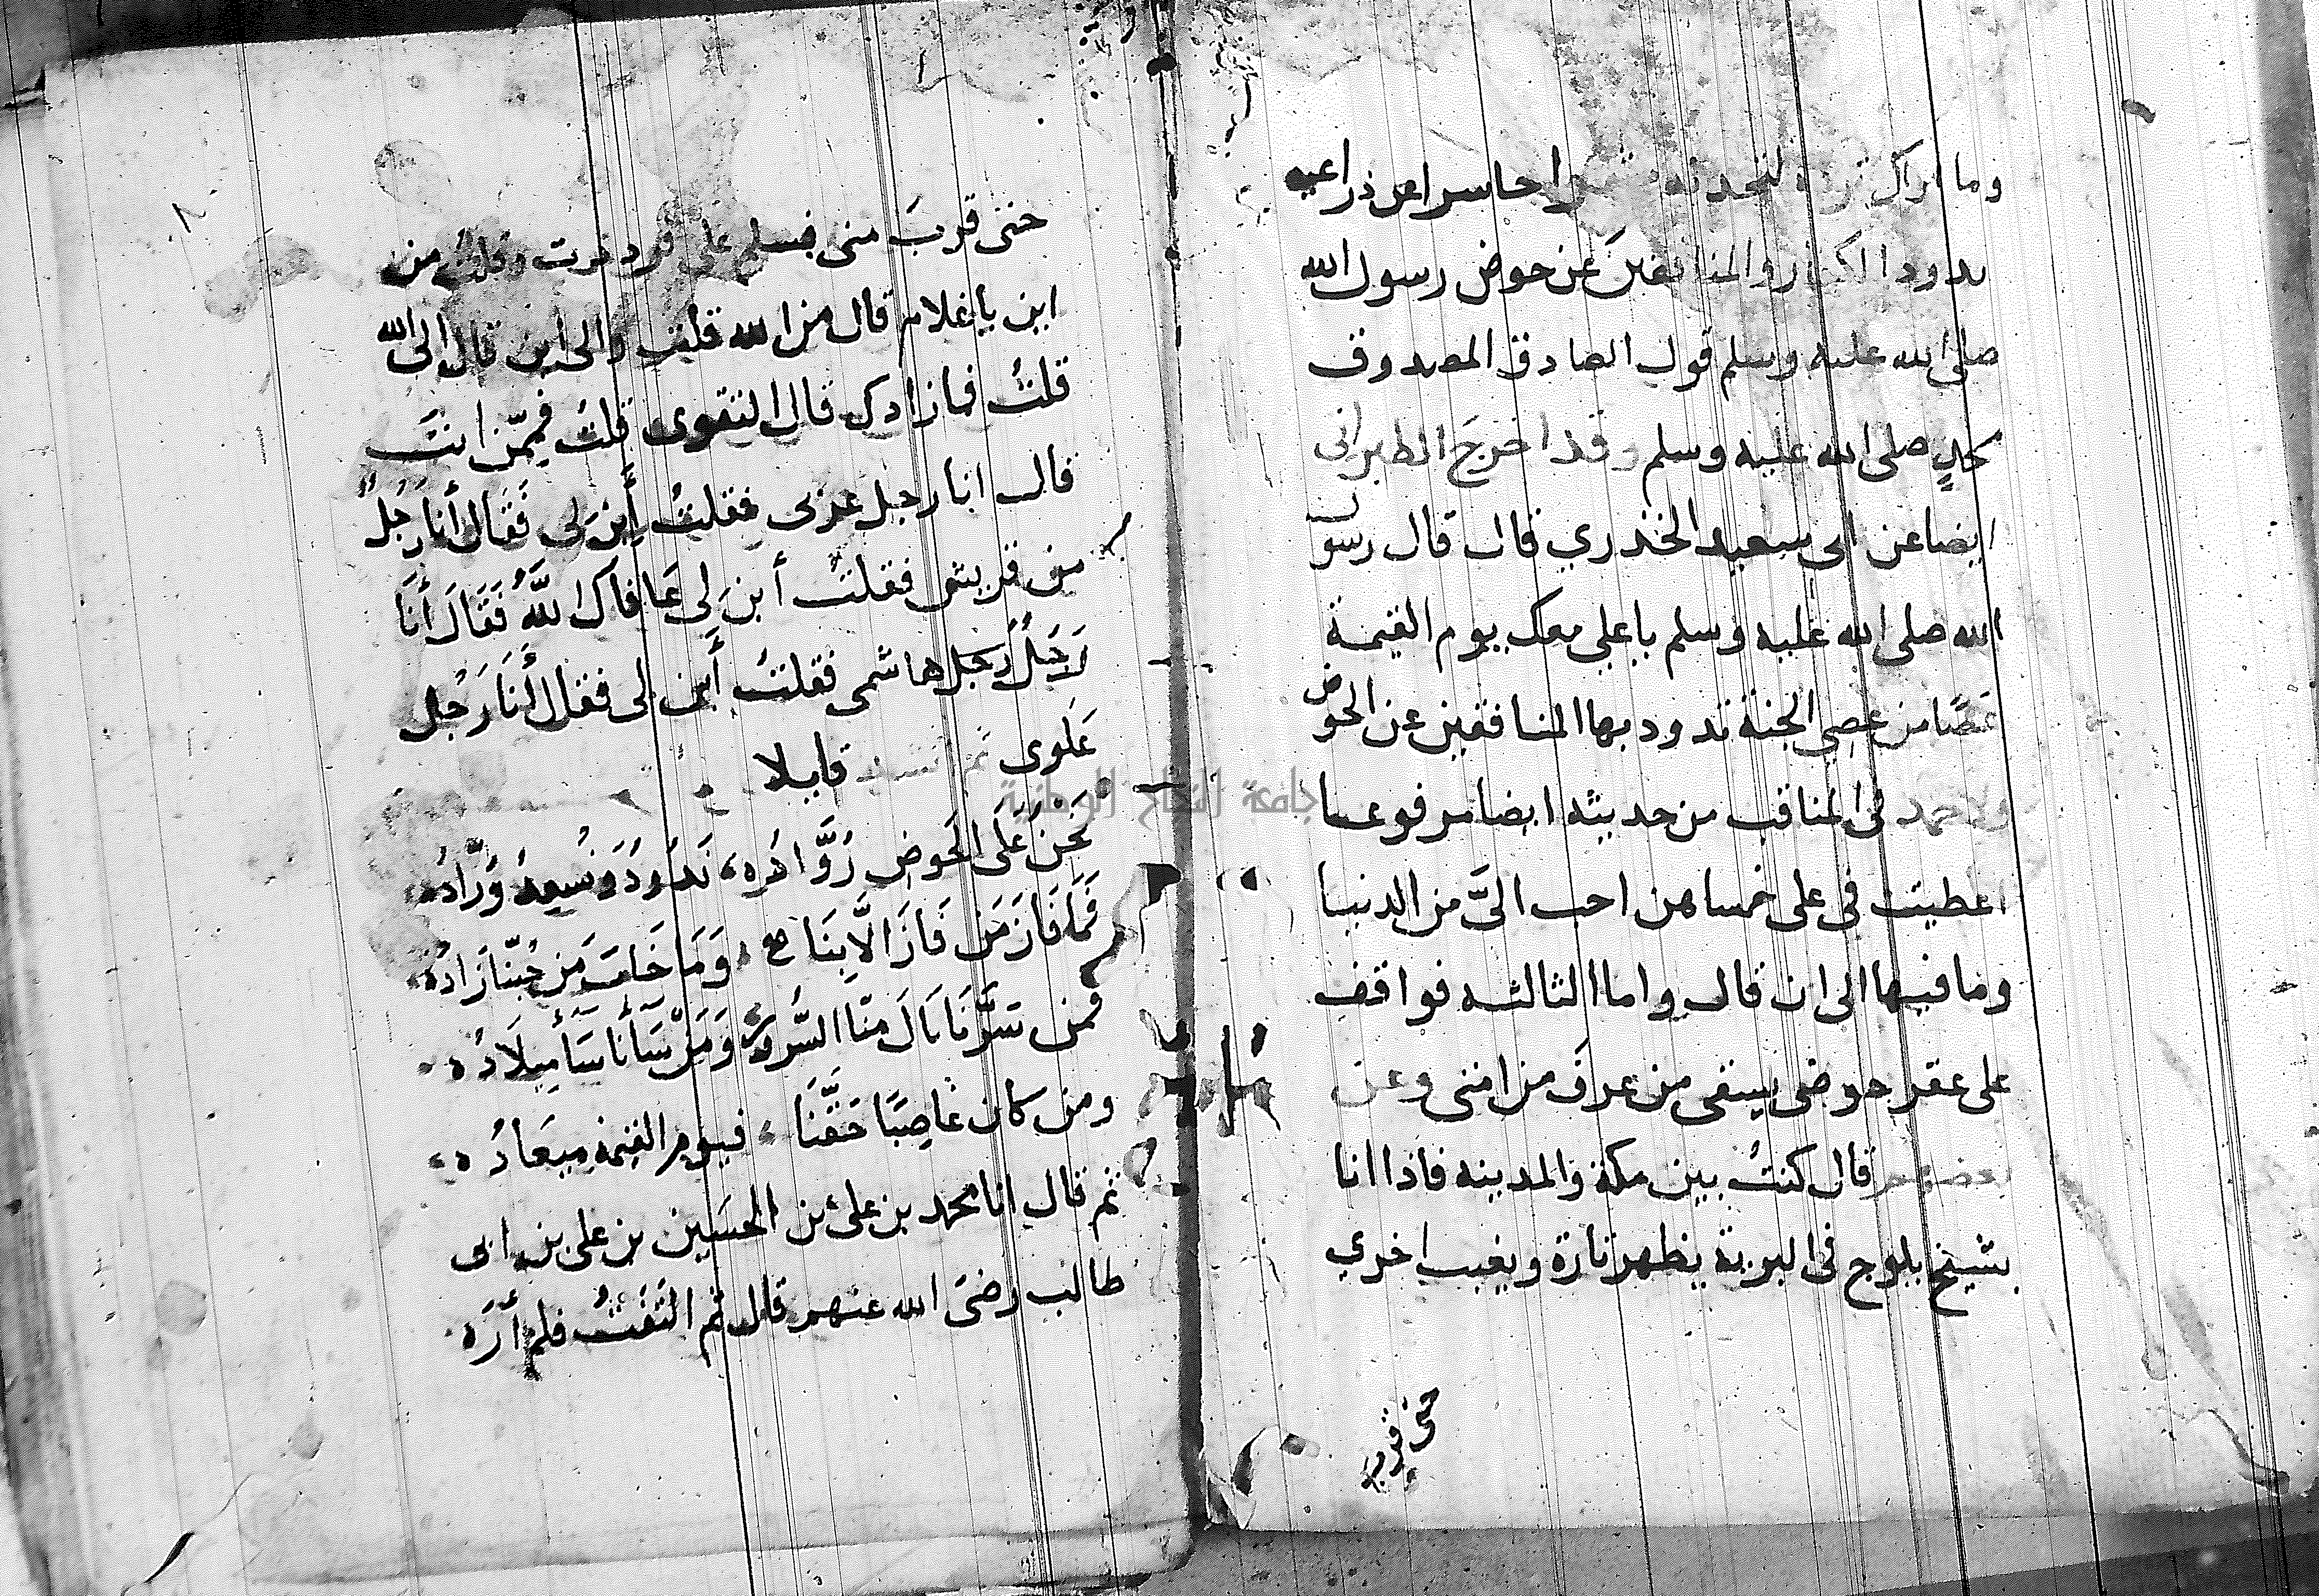 وما اراك لتجدنه حاسرا عن ذراعيه
يدود الكفار والمنافقينَ عن حوض رسول الله
صلى الله عليه وسلم قول الصادق المصدوق
محمدٍ صلى الله عليه وسلم وقد اخرجَ الطبرانى
ايضا عن ابى سعيد الخدري قال قال رسول
الله صلى الله عليه وسلم يا على معك يوم القيمة
عَصًا من عصي الجنة تدود بها المنافقين عن الحوض
ولاحمد فى المناقب من حديثه ايضا مرفوعا
اعطيت فى على خمسا هن احب الىَّ من الدنيا
وما فيها الى ان قال واما الثالثه فواقف
على عقر حوضى يسقى من عرفَ من امتى وعن
بعضهم قال كنتُ بين مكة والمدينه فاذا انا
بشيخ يلوح فى البرية يظهر تارة ويغيب اخري
حتى قرب
حتى قربَ منى فسلم على فرددت وقلتُ من
اين يا غلام قال من الله قلت والى اين قال الى الله
قلتُ فما زادك قال التقوى قلتُ فمِمّن انتَ
قال انا رجل عربى فقلتُ أَبِن لى فَقَال أنا رَجُلٌ
من قريش فقلتُ أبن لى عَافاكَ اللَّهُ فَقَالَ أَنَا
رَجُلٌ رَجل هاشمى فقلتُ أَبِن لى فقال أَنَا رَجُل
عَلَوى ثم انشد قايلا
نَحْنُ عَلَى الحَوضِ رُوَّادُه، نَدُودُ وَنُسعِدُ وُرَّادُه
فَمَا فَازَ مَن فَازَ الاَّ بِنَا، وَمَا خَابَ مَن حُبّنَا زَادُه،
فمن سَرَّنَا نَالَ مِنّا السُّرور وَمَنْ سَآنَا سَآ مِيلَادُه
ومن كان غاصِبًا حَقَّنَا، فيومُ القيمةِ مِيعَادُه،
ثم قال انا محمد بن على بن الحسَين بن على بن ابى
طالب رضىَ الله عنهم قال ثم التَفَتُّ فلم أَرَه